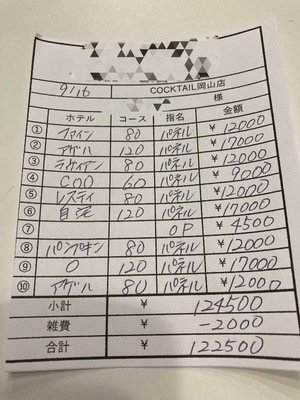 9/16 COCKTAIL岡山店
様
ホテル コース 指名 金額
① ファイン 80 パネル ¥12000
② アゲハ 120 パネル ¥17000
③ ラヴィアン 80 パネル ¥12000
④ COO 60 パネル ¥9000
⑤ レスティ 80 パネル ¥12000
⑥ 自宅 120 パネル ¥17000
⑦ OP ¥4500
⑧ パンプキン 80 パネル ¥12000
⑨ O 120 パネル ¥17000
⑩ アゲハ 80 パネル ¥12000
小計 ¥ 124500
雑費 ¥ -2000
合計 ¥ 122500